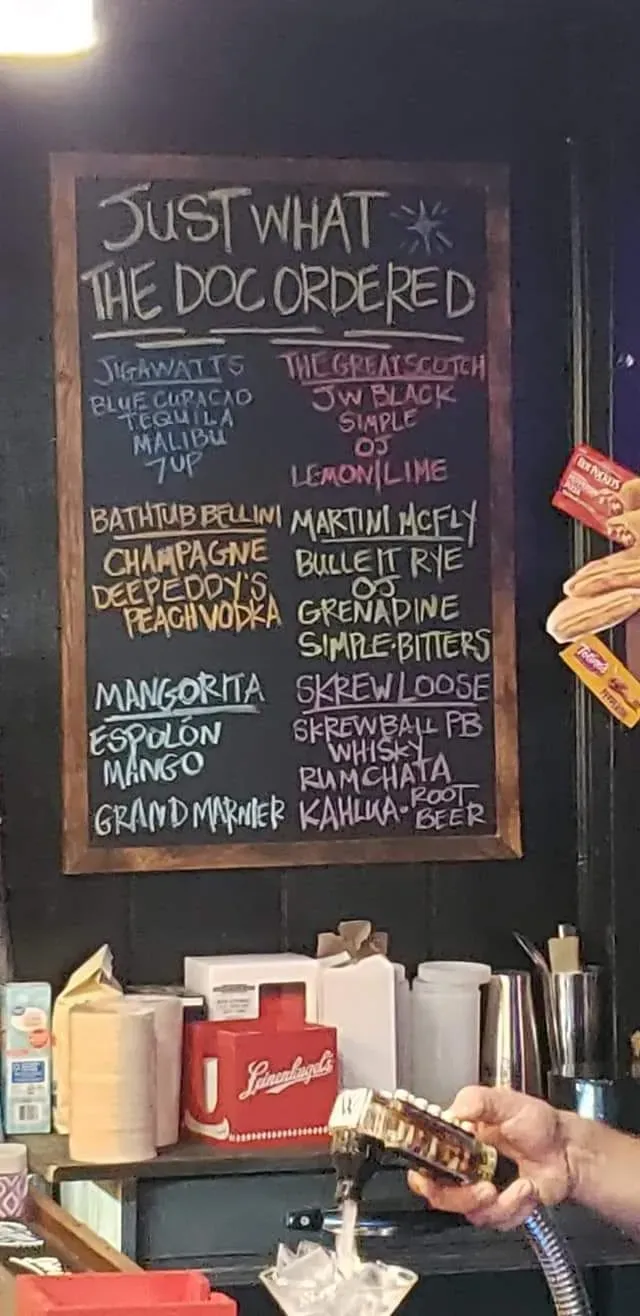 JUST WHAT
THE DOC ORDERED
JIGAWATTS
BLUE CURACAO
TEQUILA
MALIBU
7UP
THE GREAT SCOTCH
JW BLACK
SIMPLE
OJ
LEMON/LIME
BATHTUB BELLINI
CHAMPAGNE
DEEP EDDY'S
PEACH VODKA
MARTINI MCFLY
BULLEIT RYE
OJ
GRENADINE
SIMPLE-BITTERS
MANGORITA
ESPOLÓN
MANGO
GRAND MARNIER
SKREW LOOSE
SKREWBALL PB
WHISKY
RUMCHATA
KAHLUA • ROOT
BEER
HOT POCKETS
Totino's
Leinenkugel's
W